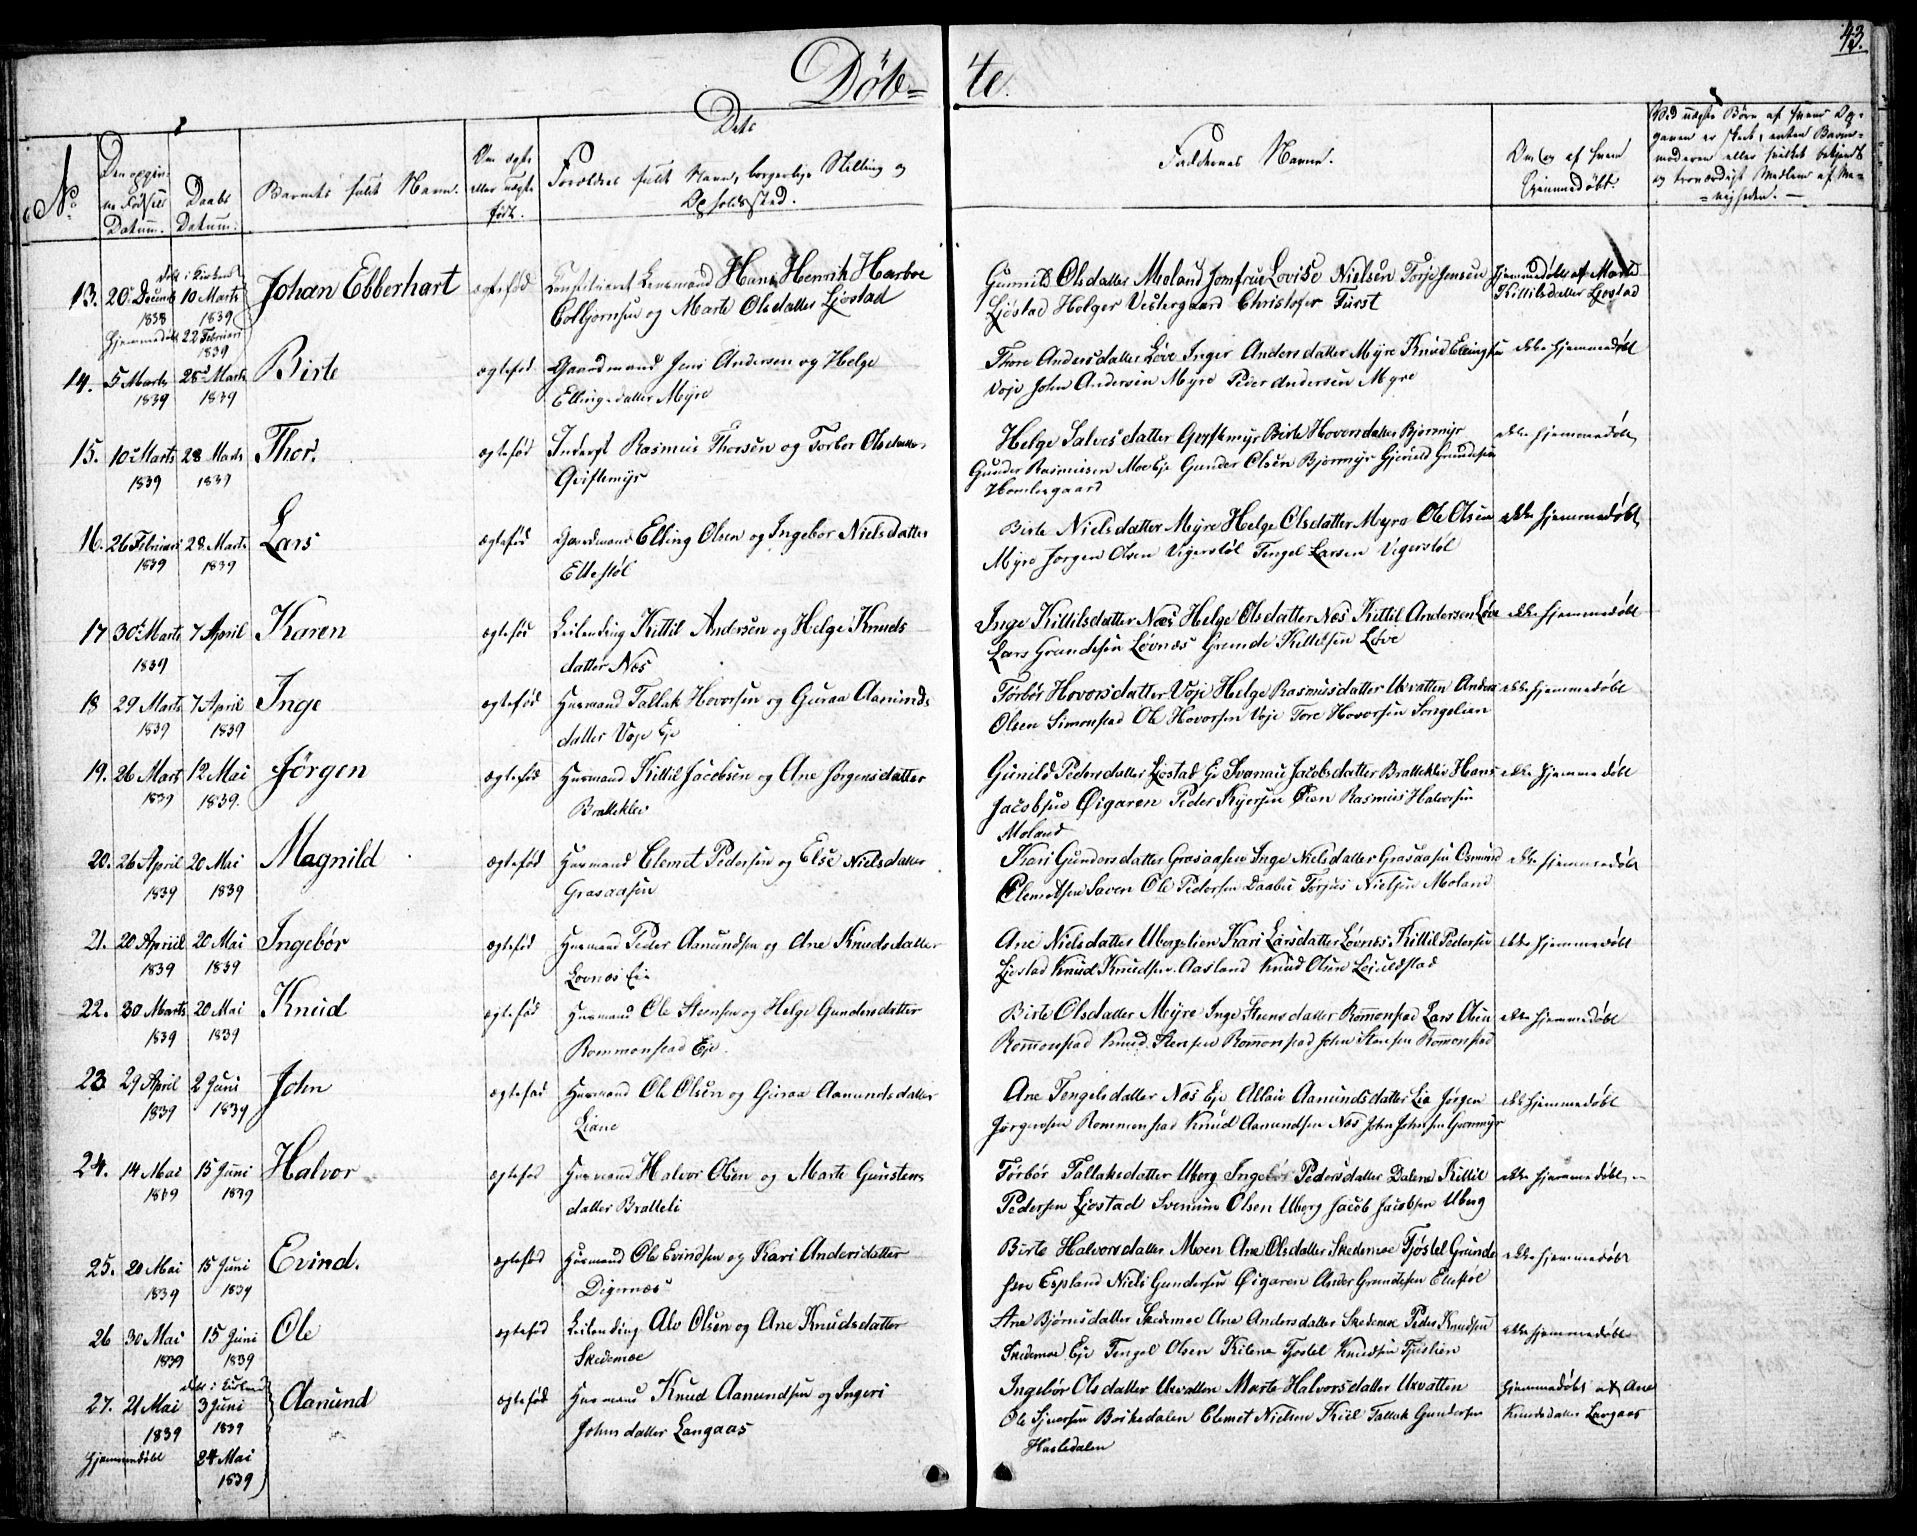 43.
Døb=
te.
Dets
No.
Den opgiv-
ne Fødsels
Datum.
Daabs
Datum.
Barnets fulde Navn.
Om ægte
eller uægte
født.
Forældres fulde Navn, borgerlige Stilling og
Opholdssted.
Faddernes Navne.
Om og af hvem
hjemmedøbt.
Ved uægte Børn af hvem Op-
gaven er skeet, enten Barne-
moderen eller hvilket bekjendt
og troværdigt Medlem af Me-
nigheden.
13. 20de Decmb 1838
10 Marts 1839
Johan Ebberhart
ægtefød
Constitueret Lensmand Hans Henrik Harboe
Colbjørnsen og Marte Olsdatter Ljøstad
Gunnild Olsdatter Moland Jomfrue Lovise Nielsen Torje Jensen
Ljøstad Holger Vestergaard Christofer Fürst
Hjemmedøbt af Marte
Kittilsdatter Ljøstad
Hjemmedøbt 22 Februari
1839
14. 5 Marts 1839
28de Marts 1839
Birte
ægtefød
Gaardmand Jens Andersen og Helge
Ellingsdatter Myre
Thore Andersdatter Løve Inger Andersdatter Myre Knud Ellingsen
Voje John Andersen Myre Peder Andersen Myre
ikke hjemmedøbt
15. 10de Marts 1839
28 Marts 1839
Thor.
ægtefød
Inderst Rasmus Thorsen og Torbor Olsdatter
Qviftemyr
Helge Salvesdatter Birte Hovorsdatter Bjormyr
Gunder Rasmusen Moe Eje Gunder Olsen Bjormyr
ikke hjemmedøbt
16. 26 Februari 1839
28 Marts 1839
Lars
ægtefød
Gaardmand Elling Olsen og Ingebor Nielsdatter
Ellestøl
Birte Nielsdatter Myre Helge Olsdatter Myre Ole Olsen
Myre Jorgen Olsen Vigerstøl Tengel Larsen Vigerstøl
ikke hjemmedøbt
17 30te Marts 1839
7 April
Karen
ægtefød
Leilending Kittil Andersen og Helge Knuds
datter Næs
Inge Kittilsdatter Næs Helge Olsdatter Næs Kittil Andersen Løve
Lars Grundesen Løvnæs Grunde Kittilsen Løve
ikke hjemmedøbt
18 29 Marts 1839
7 April 1839
Inge
ægtefød
Husmand Tallak Hovorsen og Guraa Aanunds
datter Voje Eje
Torbør Hovorsdatter Voje Helge Rasmusdatter Uxvatten Anders
Olsen Simonstad Ole Hovorsen Voje Tore Hovorsen Songelien
ikke hjemmedøbt
19. 26 Marts 1839
12 Mai 1839.
Jørgen
ægtefød
Husmand Kittil Jacobsen og Ane Jørgensdatter
Bratteklev
Gunild Pedersdatter Ljøstad Eje Svanau Jacobsdatter Bratteklev Hans
Jacobsen Øigaren Peder Øien Rasmus Halvorsen
Moland
ikke hjemmedøbt
20. 26 April 1839
20 Mai 1839
Magnild
ægtefød
Husmand Clemet Pedersen og Else Nielsdatter
Grasaasen
Kari Gundersdatter Grasaasen Inge Nielsdatter Grasaasen Osmund
Clemetsen Saven Ole Pedersen Daabu Torjus Nielsen Moland
ikke hjemmedøbt
21. 20 April 1839
20 Mai 1839
Ingebør
ægtefød
Husmand Peder Aanundsen og Ane Knudsdatter
Lovnæs Eie
Ane Nielsdatter Ubergslien Kari Larsdatter Løvnæs Kittil Pedersen
Ljøstad Knud Knudsen Aasland Knud Olsen Lejuldstad
ikke hjemmedøbt
22. 30 Marts 1839
20 Mai 1839
Knud
ægtefød
Husmand Ole Stensen og Helge Gundersdatter
Rommonstad Eje.
Birte Olsdatter Myre Inge Stensdatter Romonstad Lars Olsen
Romonstad Knud Stensen Romonstad John Stensen Romonstad
ikke hjemmedøbt
23 29 April 1839
2 Juni 1839
John
ægtefød
Husmand Ole Olsen og Guraa Aanundsdatter
Liane
Ane Tengelsdatter Næs Eje Allau Aanundsdatter Lia Jørgen
Jørgensen Rommonstad Knud Aanundsen Næs John Johnsen Grønmyr
ikke hjemmedøbt
24. 14 Mai 1839
15 Juni 1839
Halvor
ægtefød
Husmand Halvor Olsen og Marte Gunstens
datter Bratteli
Torbør Tallaksdatter Uberg Ingebør Pedersdatter Dalene Kittil
Pedersen Ljøstad Svenum Olsen Uberg Jacob Jacobsen Uberg
ikke hjemmedøbt
25. 20 Mai 1839
15 Juni 1839
Evind.
ægtefød
Husmand Ole Evindsen og Kari Andersdatter
Digernæs
Birte Halvorsdatter Moen Ane Olsdatter Skedemoe Tjøstel Grunde
sen Espland Niels Gundersen Øigaren Anders Grundesen Ellestøl
ikke hjemmedøbt
26 30 Mai 1839
15 Juni 1839
Ole
ægtefød
Leilending Alv Olsen og Ane Knudsdatter
Skedemoe
Ane Bjørnsdatter Skedemoe Ane Andersdatter Skedemoe Peder Knudsen
Skedemoe Eje Tengel Olsen Kilene Tjostel Knudsen
ikke hjemmedøbt
27. 21 Mai 1839
3 Juni 1839
Aanund
ægtefød
Husmand Knud Aanundsen og Ingeri
Johnsdatter Langaas
Ingebør Olsdatter Uxvatten Marte Halvorsdatter Uxvatten
Ole Sjversen Borkedalen Clemet Nielsen Kiil Tallak Gundersen
Hasledalen
Hjemmedøbt af Ane
Knudsdatter Langaas
Hjemmedøbt 24 Mai
1839